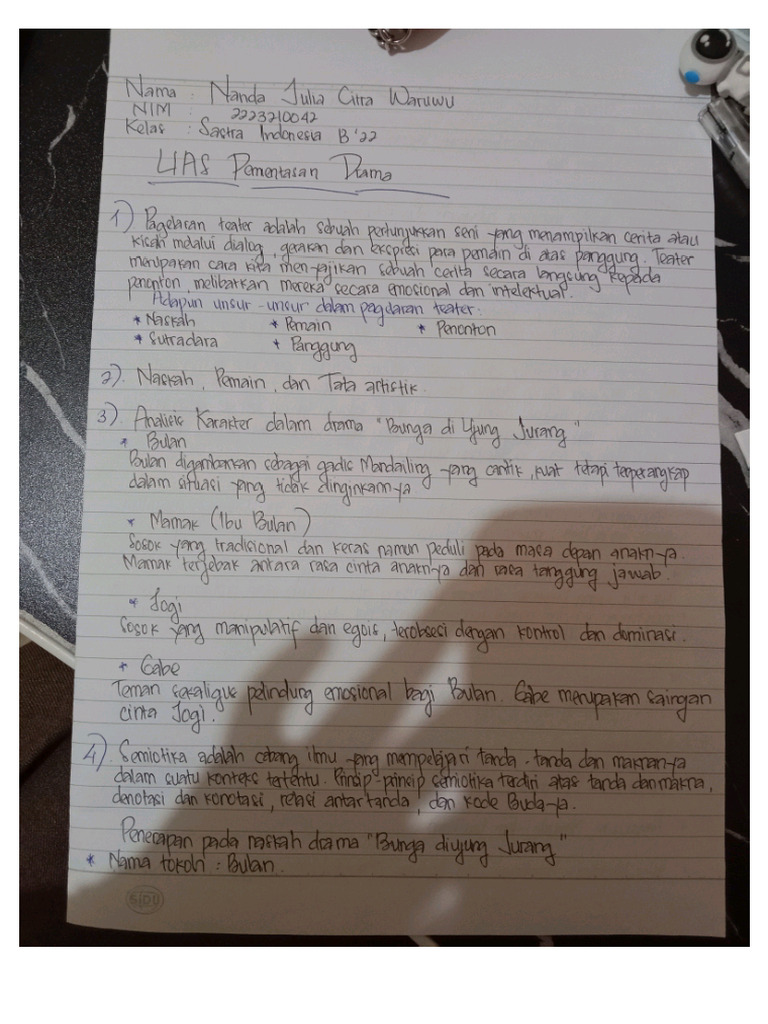 Nama : Nanda Julia Citra Waruwu
NIM : 2223210042
Kelas : Sastra Indonesia B '22
UAS Pementasan Drama
1) Pagelaran teater adalah sebuah pertunjukkan seni yang menampilkan cerita atau
kisah melalui dialog, gerakan dan ekspresi para pemain di atas panggung. Teater
merupakan cara kita men-yajikan sebuah cerita secara langsung kepada
penonton, melibatkan mereka secara emosional dan intelektual.
Adapun unsur-unsur dalam pagelaran teater:
* Naskah * Pemain * Penonton
* Sutradara * Panggung
2). Naskah, Pemain, dan Tata artistik.
3). Analisis Karakter dalam drama "Bunga di Ujung Jurang"
* Bulan
Bulan digambarkan sebagai gadis Mandailing yang cantik, kuat tetapi terperangkap
dalam situasi yang tidak diinginkannya
* Mamak (Ibu Bulan)
Sosok yang tradisional dan keras namun peduli pada masa depan anakn-ya.
Mamak terjebak antara rasa cinta anakn-ya dan rasa tanggung jawab.
* Jogi
Sosok yang manipulatif dan egois, terobsesi dengan kontrol dan dominasi.
* Gabe
Teman sekaligus pelindung emosional bagi Bulan. Gabe merupakan saingan
cinta Jogi.
4). Semiotika adalah cabang ilmu yang mempelajari tanda-tanda dan maknan-ya
dalam suatu konteks tertentu. Prinsip-prinsip semiotika terdiri atas tanda dan makna,
denotasi dan konotasi, relasi antar tanda, dan kode Buda-ya.
Penerapan pada naskah drama "Bunga diujung Jurang"
* Nama tokoh : Bulan.
SIDU